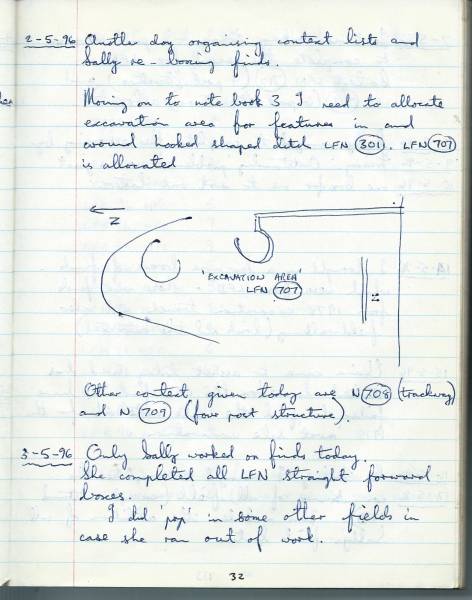 2-5-96 Another day organising context lists and
Sally re-boxing finds.
Moving on to note book 3 I need to allocate
excavation area for features in and
around hooked shaped ditch LFN 301. LFN 707
is allocated
N
'EXCAVATION AREA'
LFN 707
Other context given today are N 708 (trackway)
and N 709 (four post structure).
3-5-96 Only Sally worked on finds today.
She completed all LFN straight forward
boxes.
I did 'pop' in some other fields in
case she ran out of work.
32